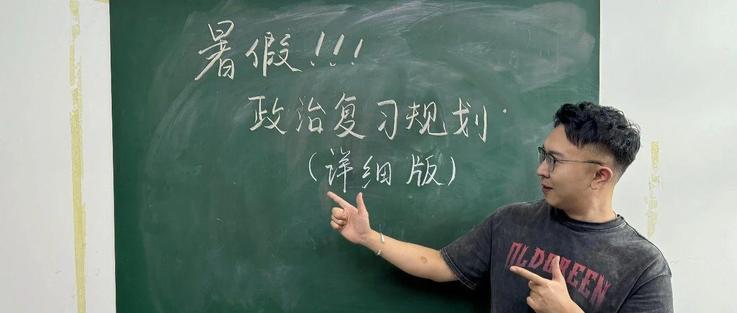 暑假!!!
政治复习规划.
(详细版)
OLDGREEN